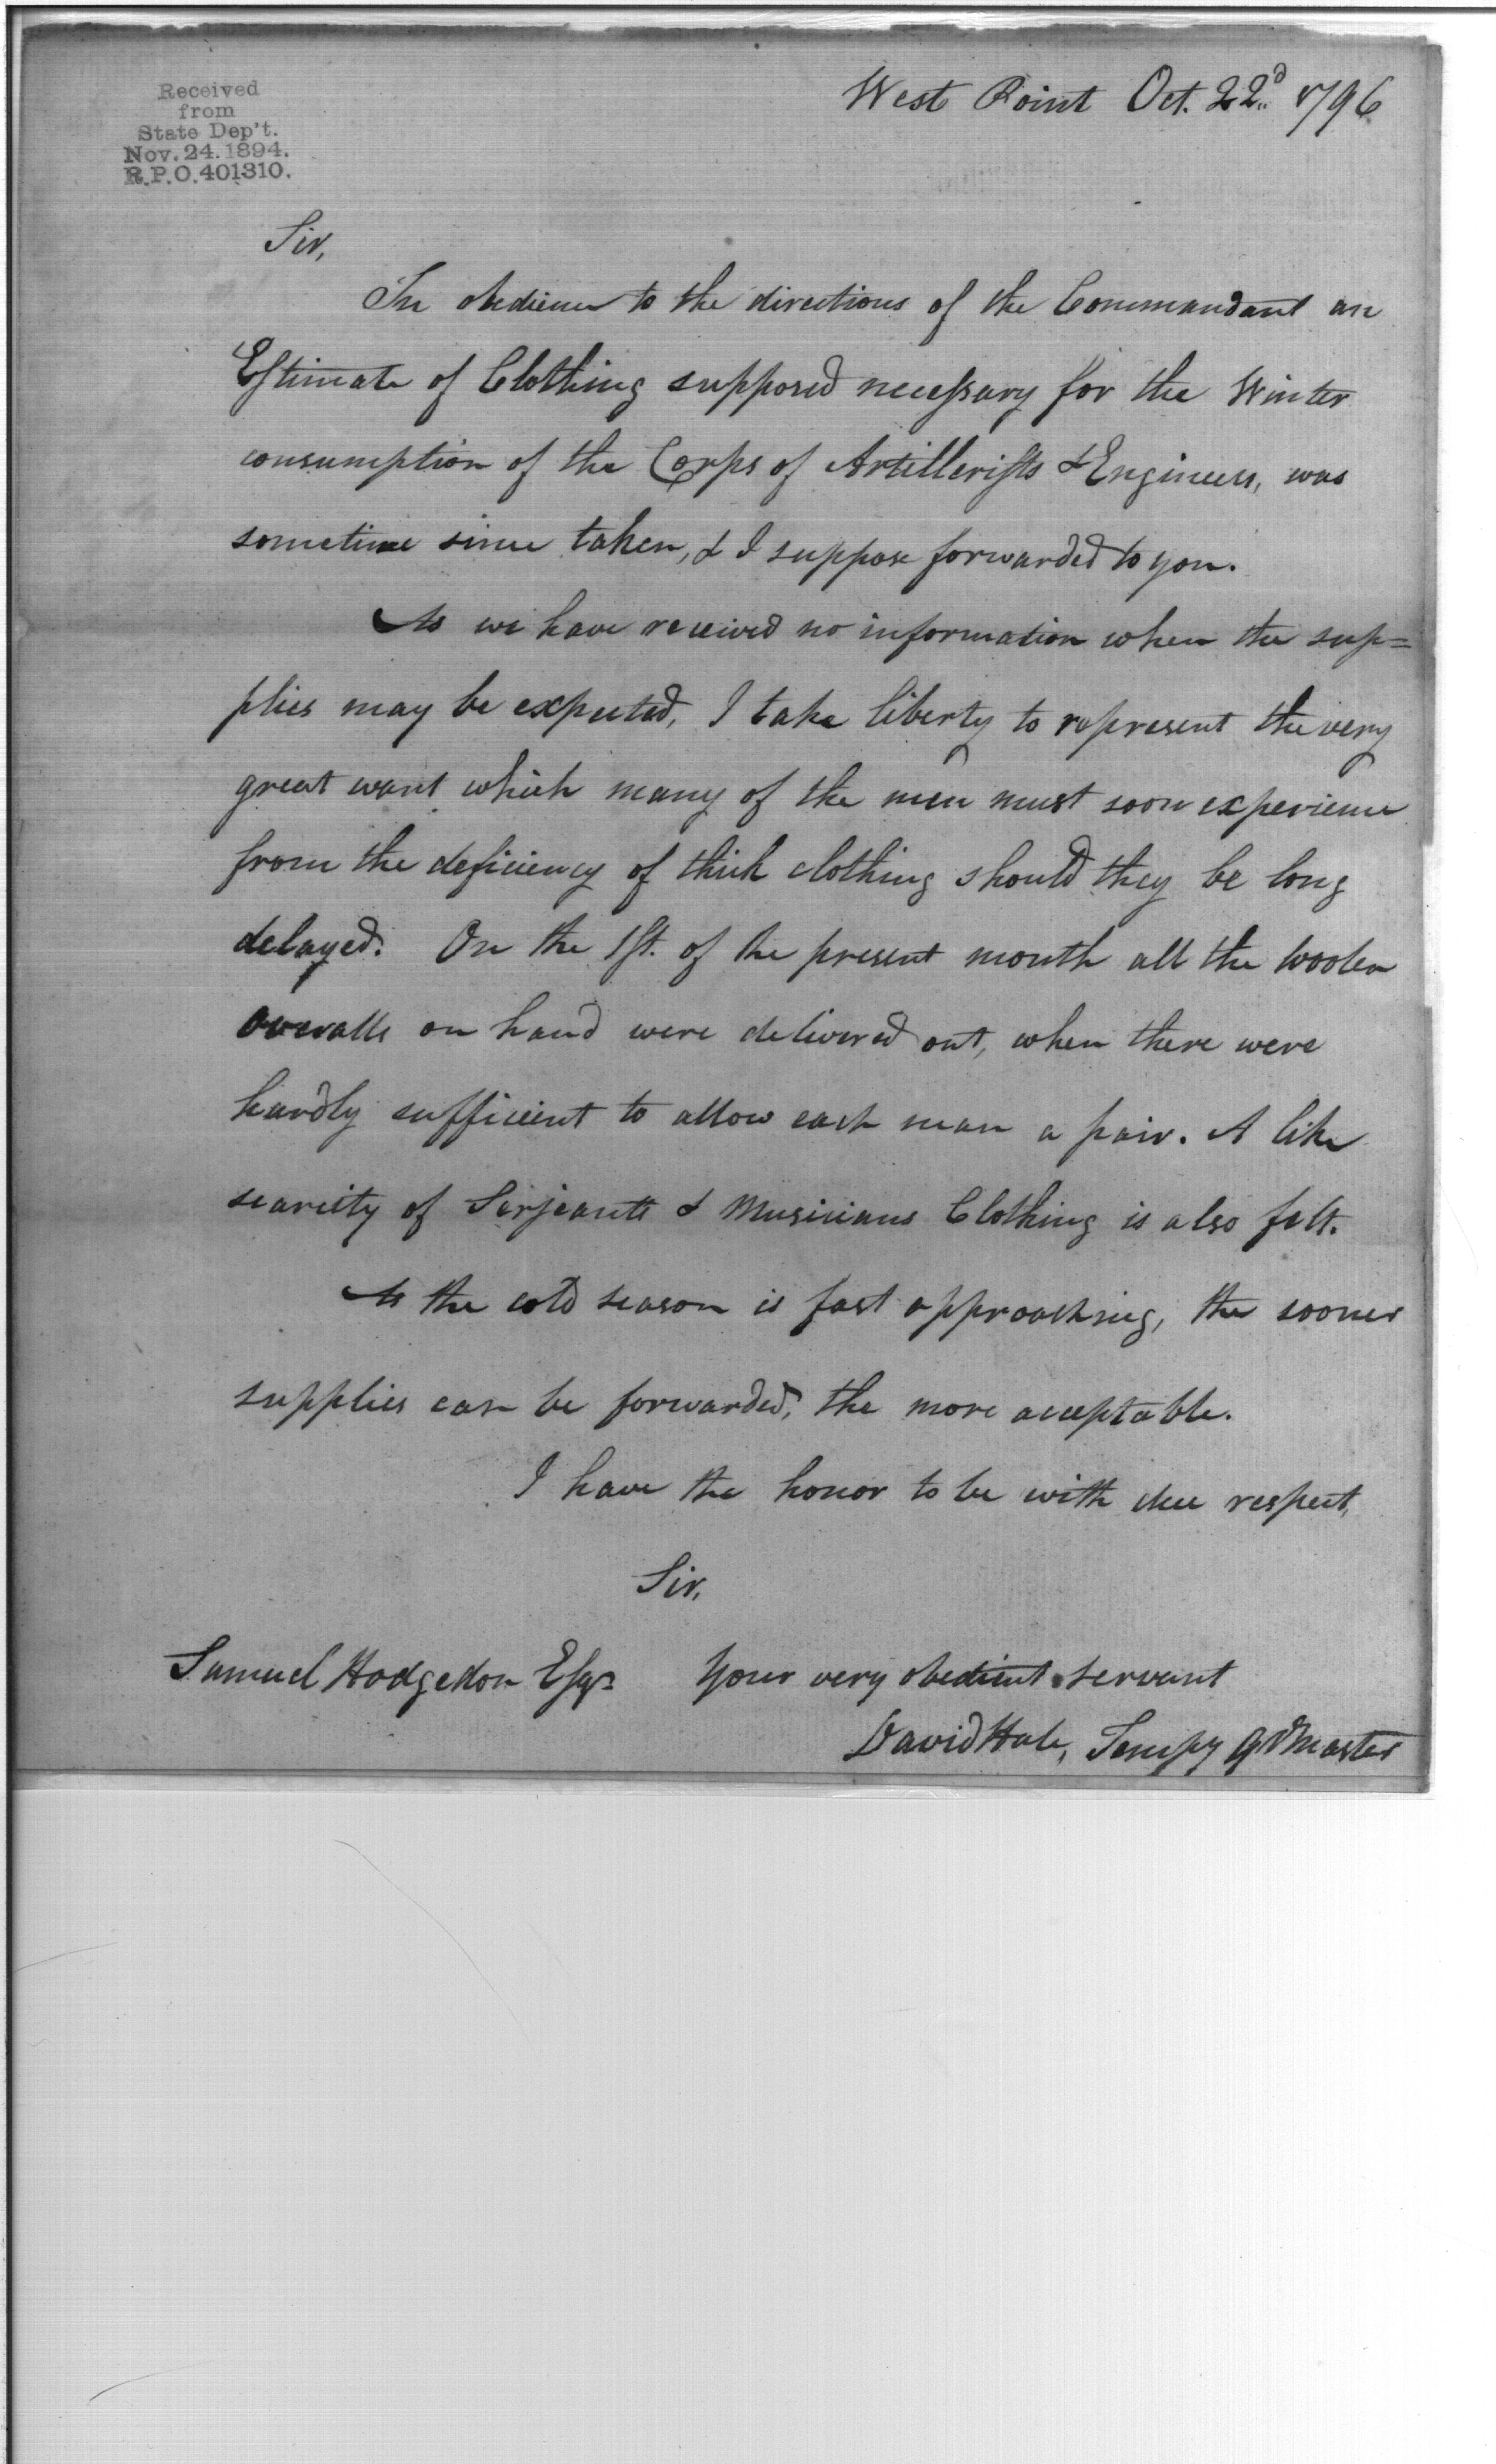 Received
from
State Dep't.
Nov. 24. 1894.
R.P.O. 401310.
West Point Oct. 22d 1796
Sir,
In obedience to the directions of the Commandant an
Estimate of Clothing supposed necessary for the Winter
consumption of the Corps of Artillerists & Engineers, was
sometime since taken, & I suppose forwarded to you.
As we have received no information when the sup=
plies may be expected, I take liberty to represent the very
great want which many of the men must soon experience
from the deficiency of thick clothing should they be long
delayed. On the 1st. of the present month all the woolen
overalls on hand were delivered out, when there were
hardly sufficient to allow each man a pair. A like
scarcity of Serjeants & Musicians Clothing is also felt.
As the cold season is fast approaching, the sooner
supplies can be forwarded, the more acceptable.
I have the honor to be with due respect,
Sir,
Samuel Hodgdon Esqr. Your very obedient servant
David Hale, Tempy Qr Master